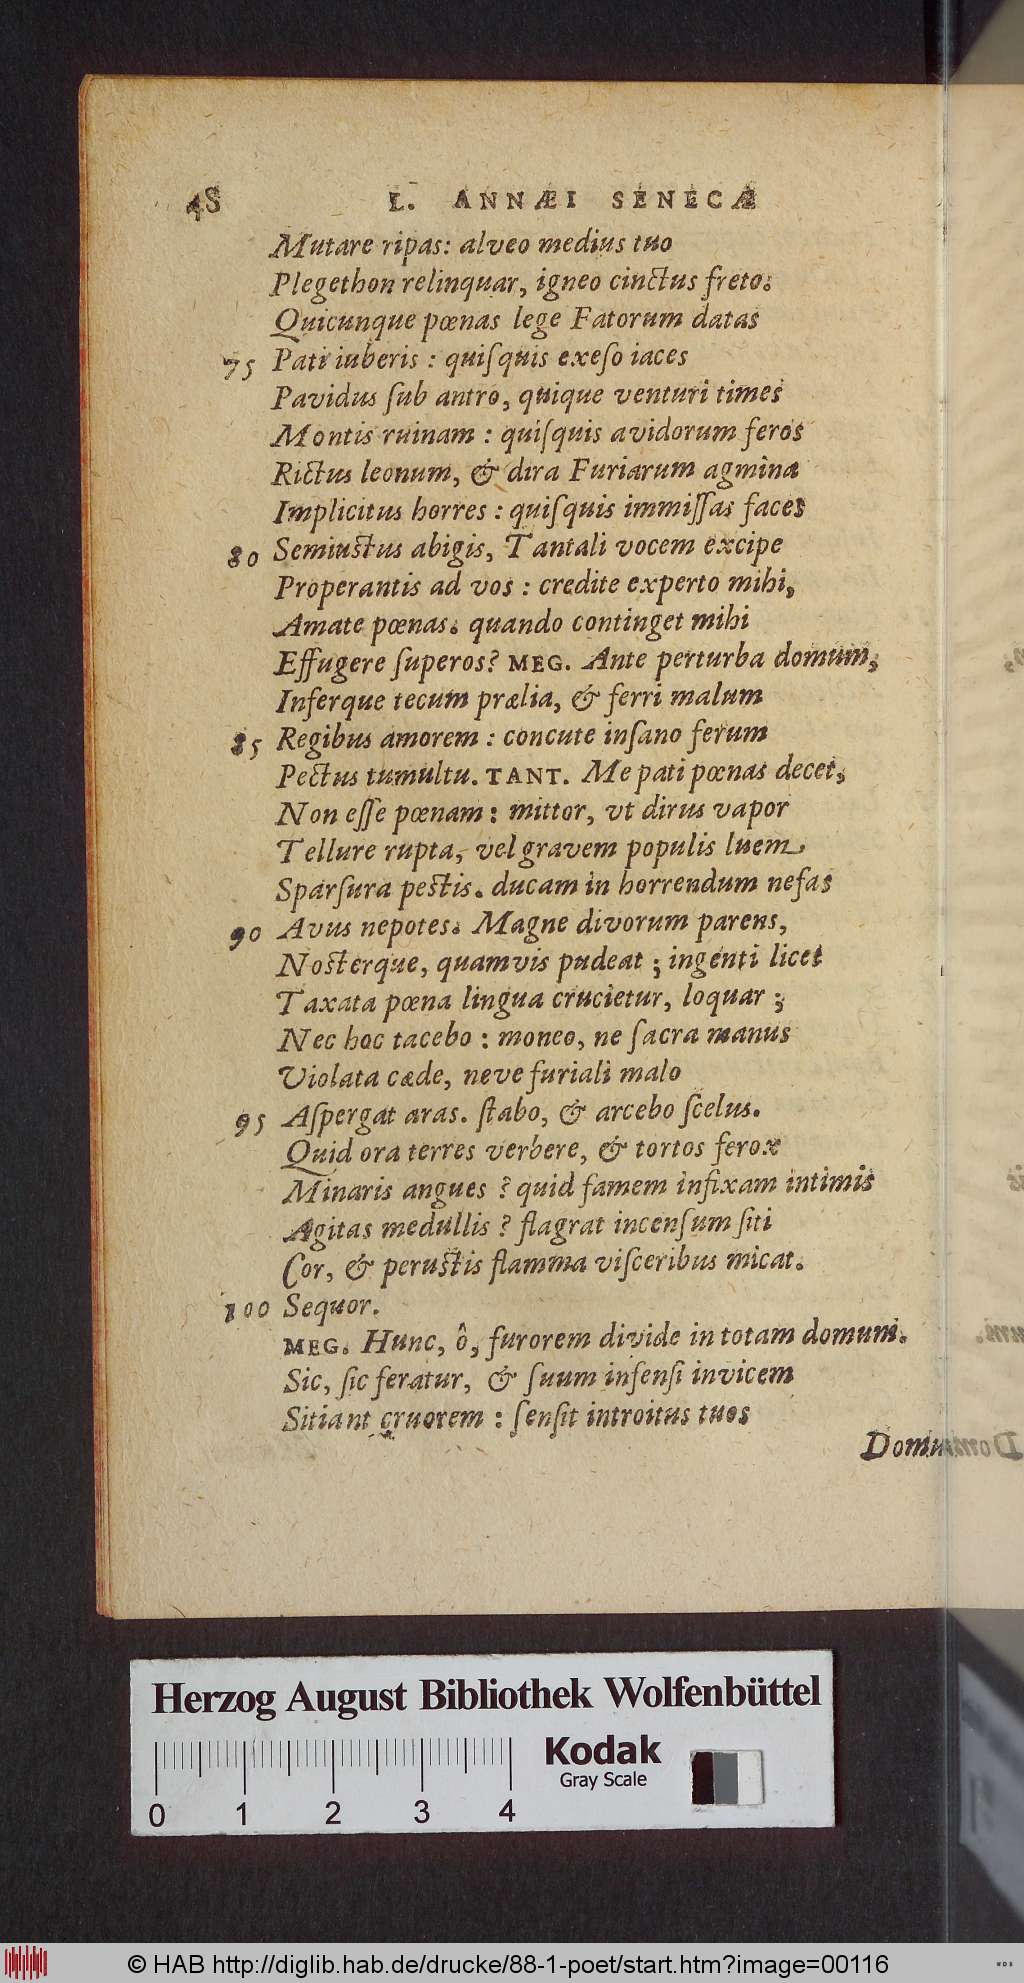 48 L. ANNÆI SENECÆ
Mutare ripas: alveo medius tuo
Plegethon relinquar, igneo cinctus freto.
Quicunque pœnas lege Fatorum datas
75 Pati iuberis : quiſquis exeſo iaces
Pavidus ſub antro, quique venturi times
Montis ruinam : quiſquis avidorum feros
Rictus leonum, & dira Furiarum agmina
Implicitus horres : quiſquis immiſſas faces
80 Semiustus abigis, Tantali vocem excipe
Properantis ad vos : credite experto mihi,
Amate pœnas. quando continget mihi
Effugere ſuperos? MEG. Ante perturba domum,
Inferque tecum prælia, & ferri malum
85 Regibus amorem : concute inſano ferum
Pectus tumultu. TANT. Me pati pœnas decet,
Non eſſe pœnam : mittor, vt dirus vapor
Tellure rupta, vel gravem populis luem
Sparſura pestis. ducam in horrendum nefas
90 Avus nepotes. Magne divorum parens,
Nosterque, quamvis pudeat ; ingenti licet
Taxata pœna lingua crucietur, loquar ;
Nec hoc tacebo : moneo, ne ſacra manus
Violata cæde, neve furiali malo
95 Aſpergat aras. ſtabo, & arcebo ſcelus.
Quid ora terres verbere, & tortos ferox
Minaris angues ? quid famem infixam intimis
Agitas medullis ? flagrat incenſum ſiti
Cor, & perustis flamma viſceribus micat.
100 Sequor.
MEG. Hunc, ô, furorem divide in totam domum.
Sic, ſic feratur, & ſuum infenſi invicem
Sitiant cruorem : ſenſit introitus tuos
Domus
Herzog August Bibliothek Wolfenbüttel
Kodak
Gray Scale
0 1 2 3 4
© HAB http://diglib.hab.de/drucke/88-1-poet/start.htm?image=00116